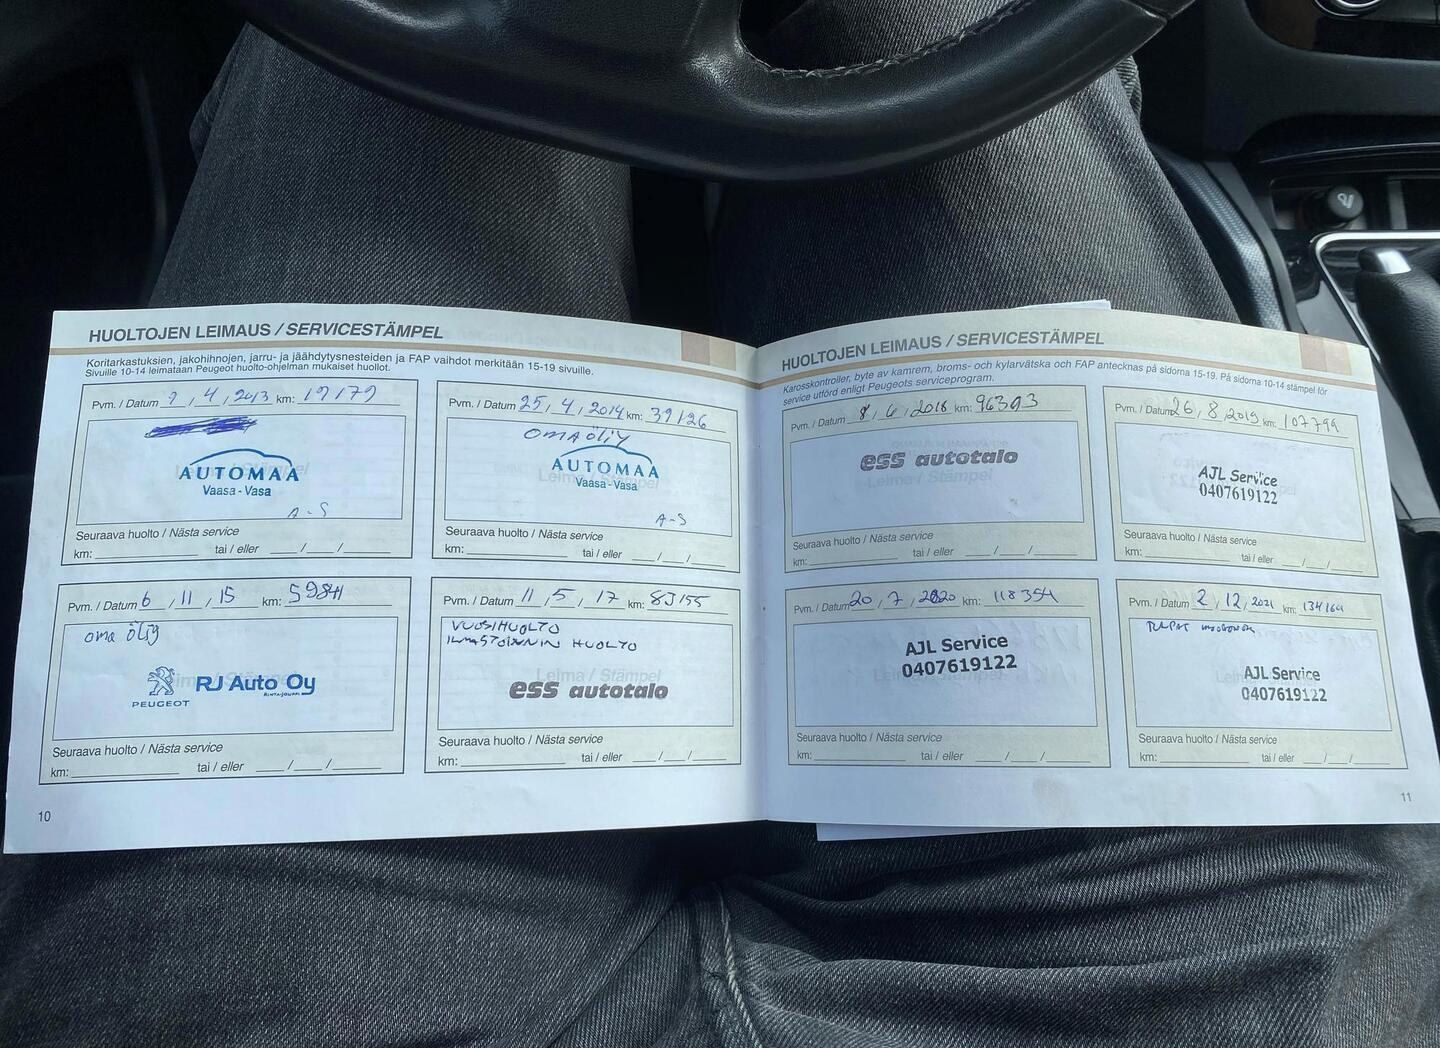 HUOLTOJEN LEIMAUS / SERVICESTÄMPEL
Koritarkastuksien, jakohihnojen, jarru- ja jäähdytysnesteiden ja FAP vaihdot merkitään 15-19 sivuille.
Sivuille 10-14 leimataan Peugeot huolto-ohjelman mukaiset huollot.
Pvm. / Datum 2, 4, 2013 km: 19179
AUTOMAA
Vaasa - Vasa
A-S
Seuraava huolto / Nästa service
km: tai / eller / /
Pvm. / Datum 25, 4, 2014 km: 39126
OMA ÖLJY
AUTOMAA
Leima / Stämpel
Vaasa - Vasa
A-S
Seuraava huolto / Nästa service
km: tai / eller / /
Pvm. / Datum 6, 11, 15 km: 59841
oma öljy
PEUGEOT
RJ Auto Oy
RINTA-JOUPPI
Seuraava huolto / Nästa service
km: tai / eller / /
Pvm. / Datum 11, 5, 17 km: 83155
VUOSIHUOLTO
ILMASTOINNIN HUOLTO
Leima / Stämpel
ess autotalo
Seuraava huolto / Nästa service
km: tai / eller / /
10
HUOLTOJEN LEIMAUS / SERVICESTÄMPEL
Karosskontroller, byte av kamrem, broms- och kylarvätska och FAP antecknas på sidorna 15-19. På sidorna 10-14 stämpel för
service utförd enligt Peugeots serviceprogram.
Pvm. / Datum 8, 6, 2018 km: 96393
ess autotalo
Leima / Stämpel
Seuraava huolto / Nästa service
km: tai / eller / /
Pvm. / Datum 26, 8, 2019 km: 107799
AJL Service
0407619122
Seuraava huolto / Nästa service
km: tai / eller / /
Pvm. / Datum 20, 7, 2020 km: 118354
AJL Service
0407619122
Seuraava huolto / Nästa service
km: tai / eller / /
Pvm. / Datum 2, 12, 2021 km: 134164
AJL Service
0407619122
Seuraava huolto / Nästa service
km: tai / eller / /
11